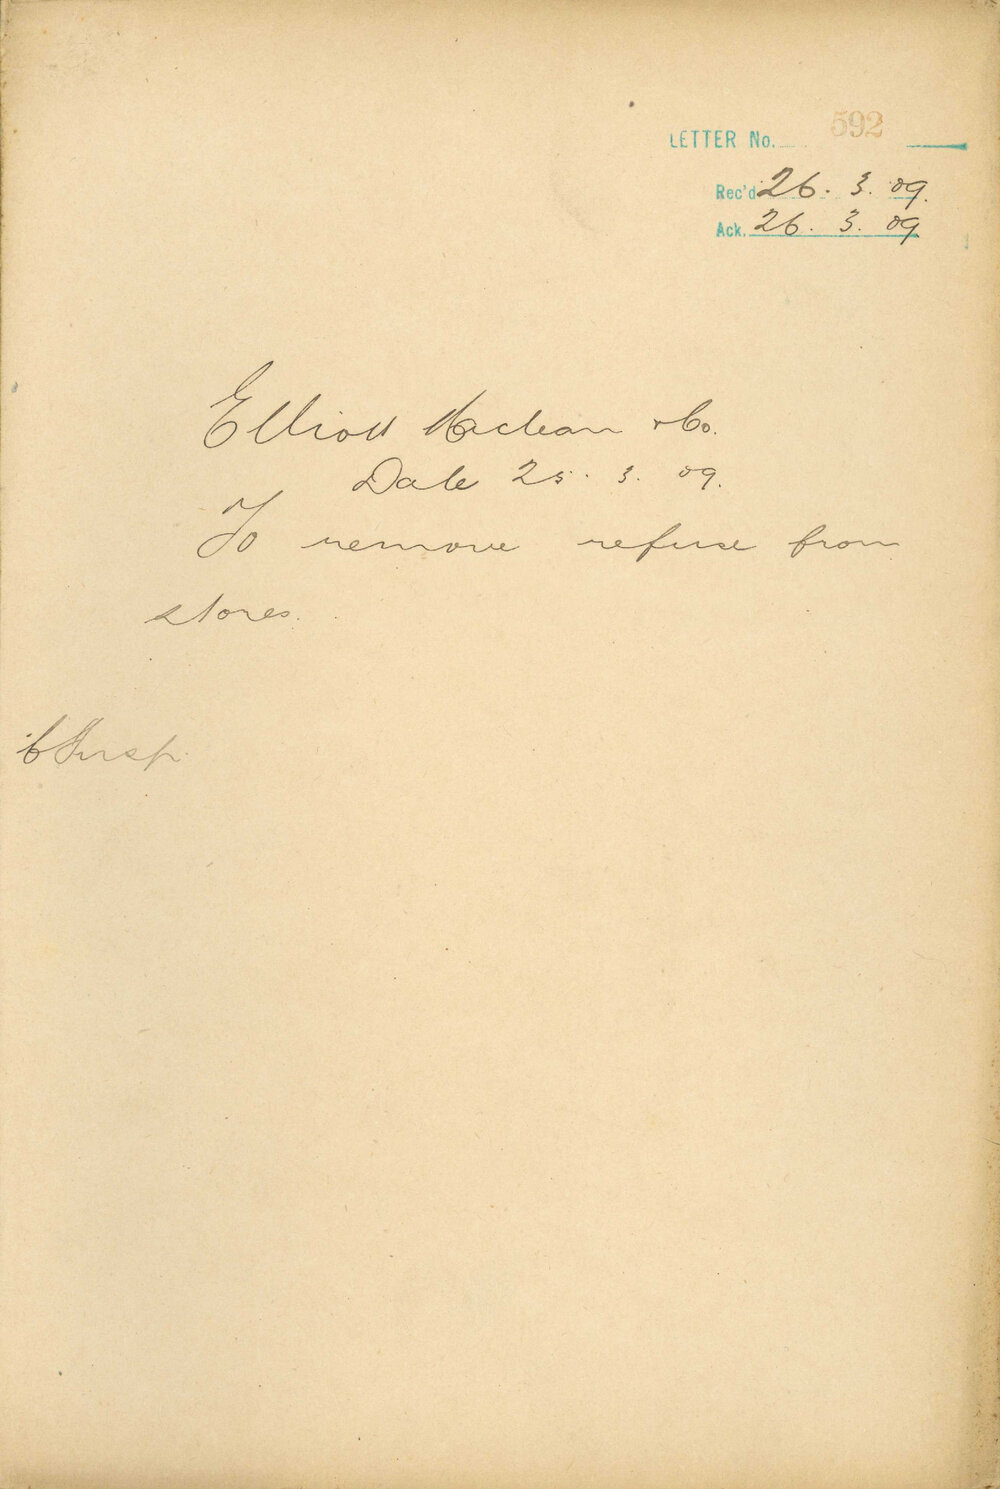 LETTER No. 592
Rec'd 26. 3. 09.
Ack. 26. 3. 09
Elliott Maclean & Co.
Date 25. 3. 09.
To remove refuse from
stores.
C Insp.